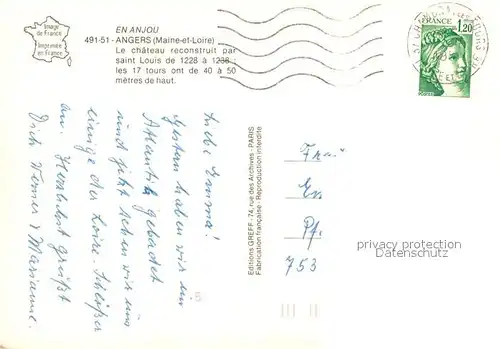 Image
de France
Imprimée
en France
EN ANJOU
491-51 - ANGERS (Maine-et-Loire)
Le château reconstruit par
saint Louis de 1228 à 1238 :
les 17 tours ont de 40 à 50
mètres de haut.
FRANCE
1,20
Liebe Emma!
Gestern haben wir im
Atlantik gebadet
und jetzt sehen wir uns
einige der Loire-Schlößer
an. Herzlichst grüßt
Dich Werner & Marianne.
Editions GREFF - 74, rue des Archives - PARIS
Fabrication française - Reproduction interdite
Frau
Em
Pf
753
privacy protection
Datenschutz